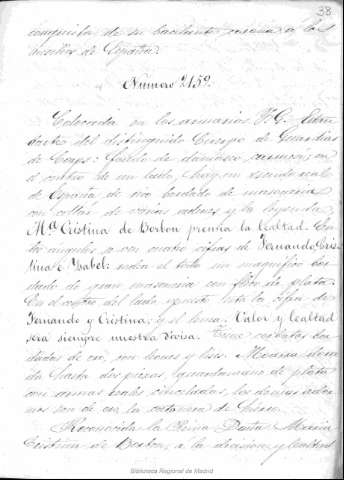 38
conquista de su excelente a los
de España.
Número 215º
Colocada en los armarios F. G. Estan
darte del distinguido Cuerpo de Guardias
de Corps: fondo de damasco carmesí; en
el centro de un lado, hay un escudo real
de España de oro bordado de
con collar de varias ordenes y la leyenda
Mª Cristina de Borbon premia la lealtad. En
los angulos se ven cuatro cifras de Fernando, Cris
tina é Ysabel: rodea el todo un magnifico bor
dado de gran con fleco de plata.
En el centro del lado opuesto está la cifra de
Fernando y Cristina; y el lema: Valor y lealtad
será siempre nuestra divisa. Tiene corbatas bor
dadas de oro, con leones y lises. Moharra
da hasta dos piezas guardamano de plata
con armas reales cinceladas, los demas ador
nos son de oro, la contera de hierro.
Reconocida la Reina Doña Maria
Cristina de Borbon, á la decision y lealtad
Biblioteca Regional de Madrid